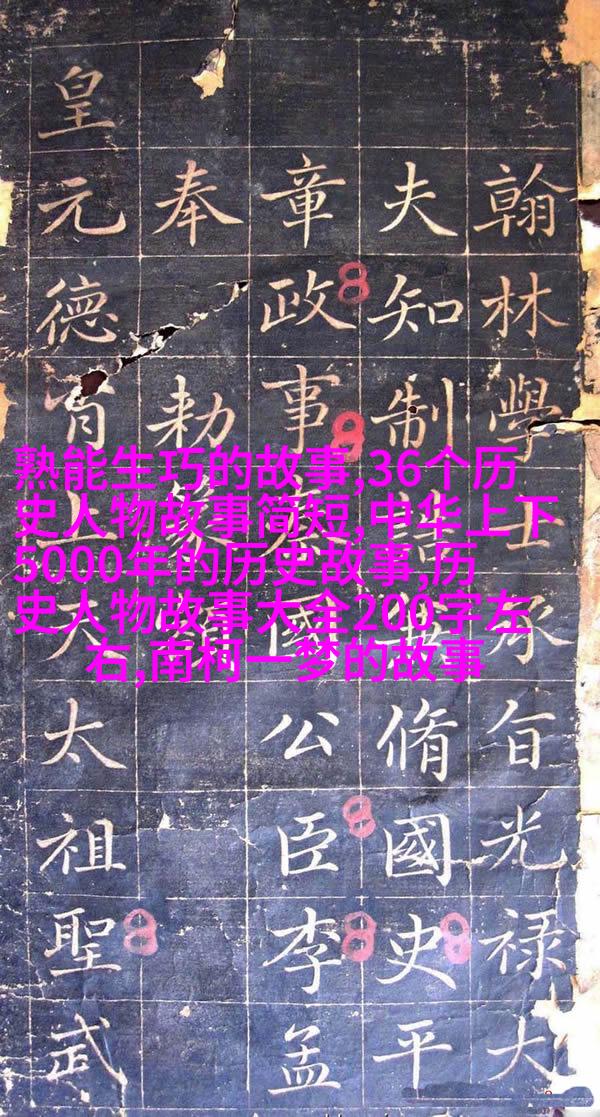 熟能生巧的故事,36个历
史人物故事简短,中华上下
5000年的历史故事,历
史人物故事大全200字左
右,南柯一梦的故事
翰林學士承旨光禄大
夫知制誥兼脩國史平
章政事秦國公臣李孟
奉勅篆
皇元德肖上天太祖聖武